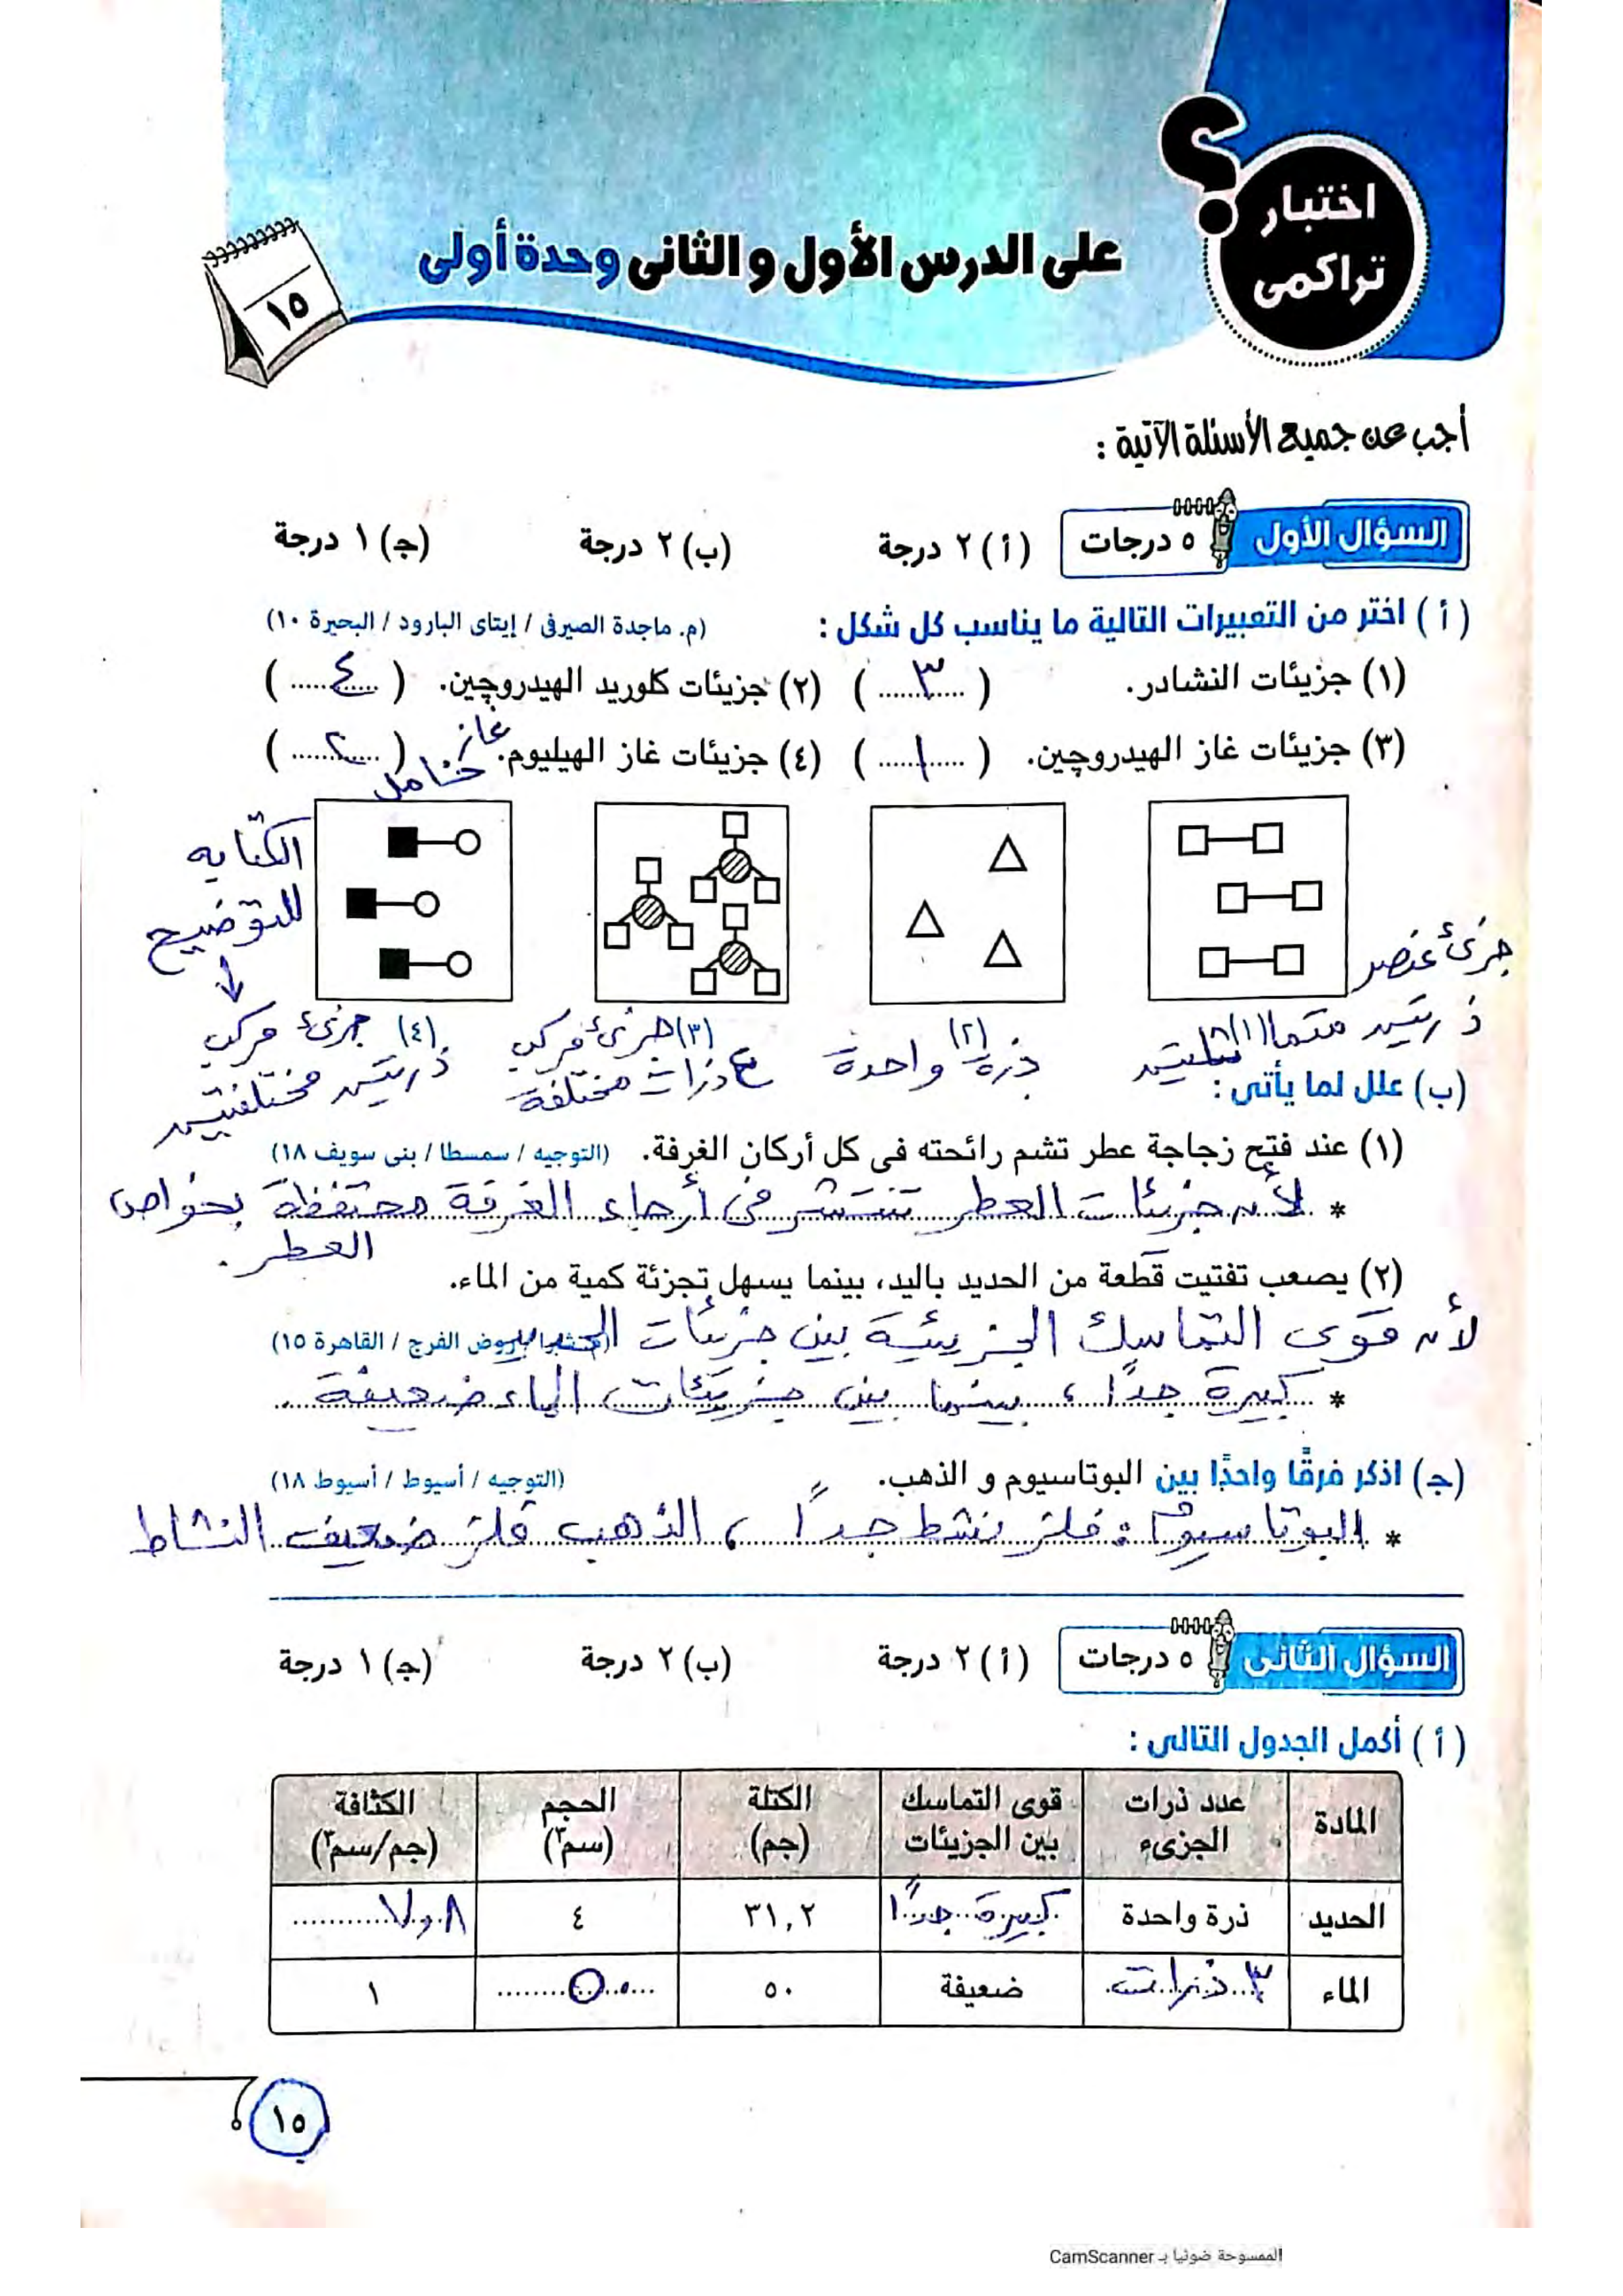 اختبار
تراكمى
؟
على الدرس الأول و الثانى وحدة أولى
١٥
أجب عن جميع الأسئلة الآتية :
السؤال الأول ٥ درجات (أ) ٢ درجة (ب) ٢ درجة (جـ) ١ درجة
(أ) اختر من التعبيرات التالية ما يناسب كل شكل : (م. ماجدة الصيرفى / إيتاى البارود / البحيرة ١٠)
(١) جزيئات النشادر. (٣) (٢) جزيئات كلوريد الهيدروچين. (٤)
(٣) جزيئات غاز الهيدروچين. (١) (٤) جزيئات غاز الهيليوم. (٢)
غاز خامل
الكتابه
للتوضيح
جزئ عنصر
(١) (٢) (٣) (٤)
ذرتين متماثلتين
ذرة واحدة
جزئ مركب
٤ ذرات مختلفة
جزئ مركب
ذرتين مختلفتين
(ب) علل لما يأتى :
(١) عند فتح زجاجة عطر تشم رائحته فى كل أركان الغرفة. (التوجيه / سمسطا / بنى سويف ١٨)
* لأن جزيئات العطر تنتشر فى أرجاء الغرفة محتفظة بخواص
العطر.
(٢) يصعب تفتيت قطعة من الحديد باليد، بينما يسهل تجزئة كمية من الماء.
لأن قوى التماسك الجزيئية بين جزيئات الحديد
روض الفرج / القاهرة ١٥)
* كبيرة جدًا، بينما بين جزيئات الماء ضعيفة.
(جـ) اذكر فرقًا واحدًا بين البوتاسيوم و الذهب. (التوجيه / أسيوط / أسيوط ١٨)
* البوتاسيوم : فلز نشط جدًا ، الذهب فلز ضعيف النشاط
السؤال الثانى ٥ درجات (أ) ٢ درجة (ب) ٢ درجة (جـ) ١ درجة
(أ) أكمل الجدول التالى :
المادة عدد ذرات الجزىء قوى التماسك بين الجزيئات الكتلة (جم) الحجم (سم٣) الكثافة (جم/سم٣)
الحديد ذرة واحدة كبيرة جدًا ٣١,٢ ٤ ٧,٨
الماء ٣ ذرات ضعيفة ٥٠ ٥٠ ١
١٥
الممسوحة ضوئيا بـ CamScanner